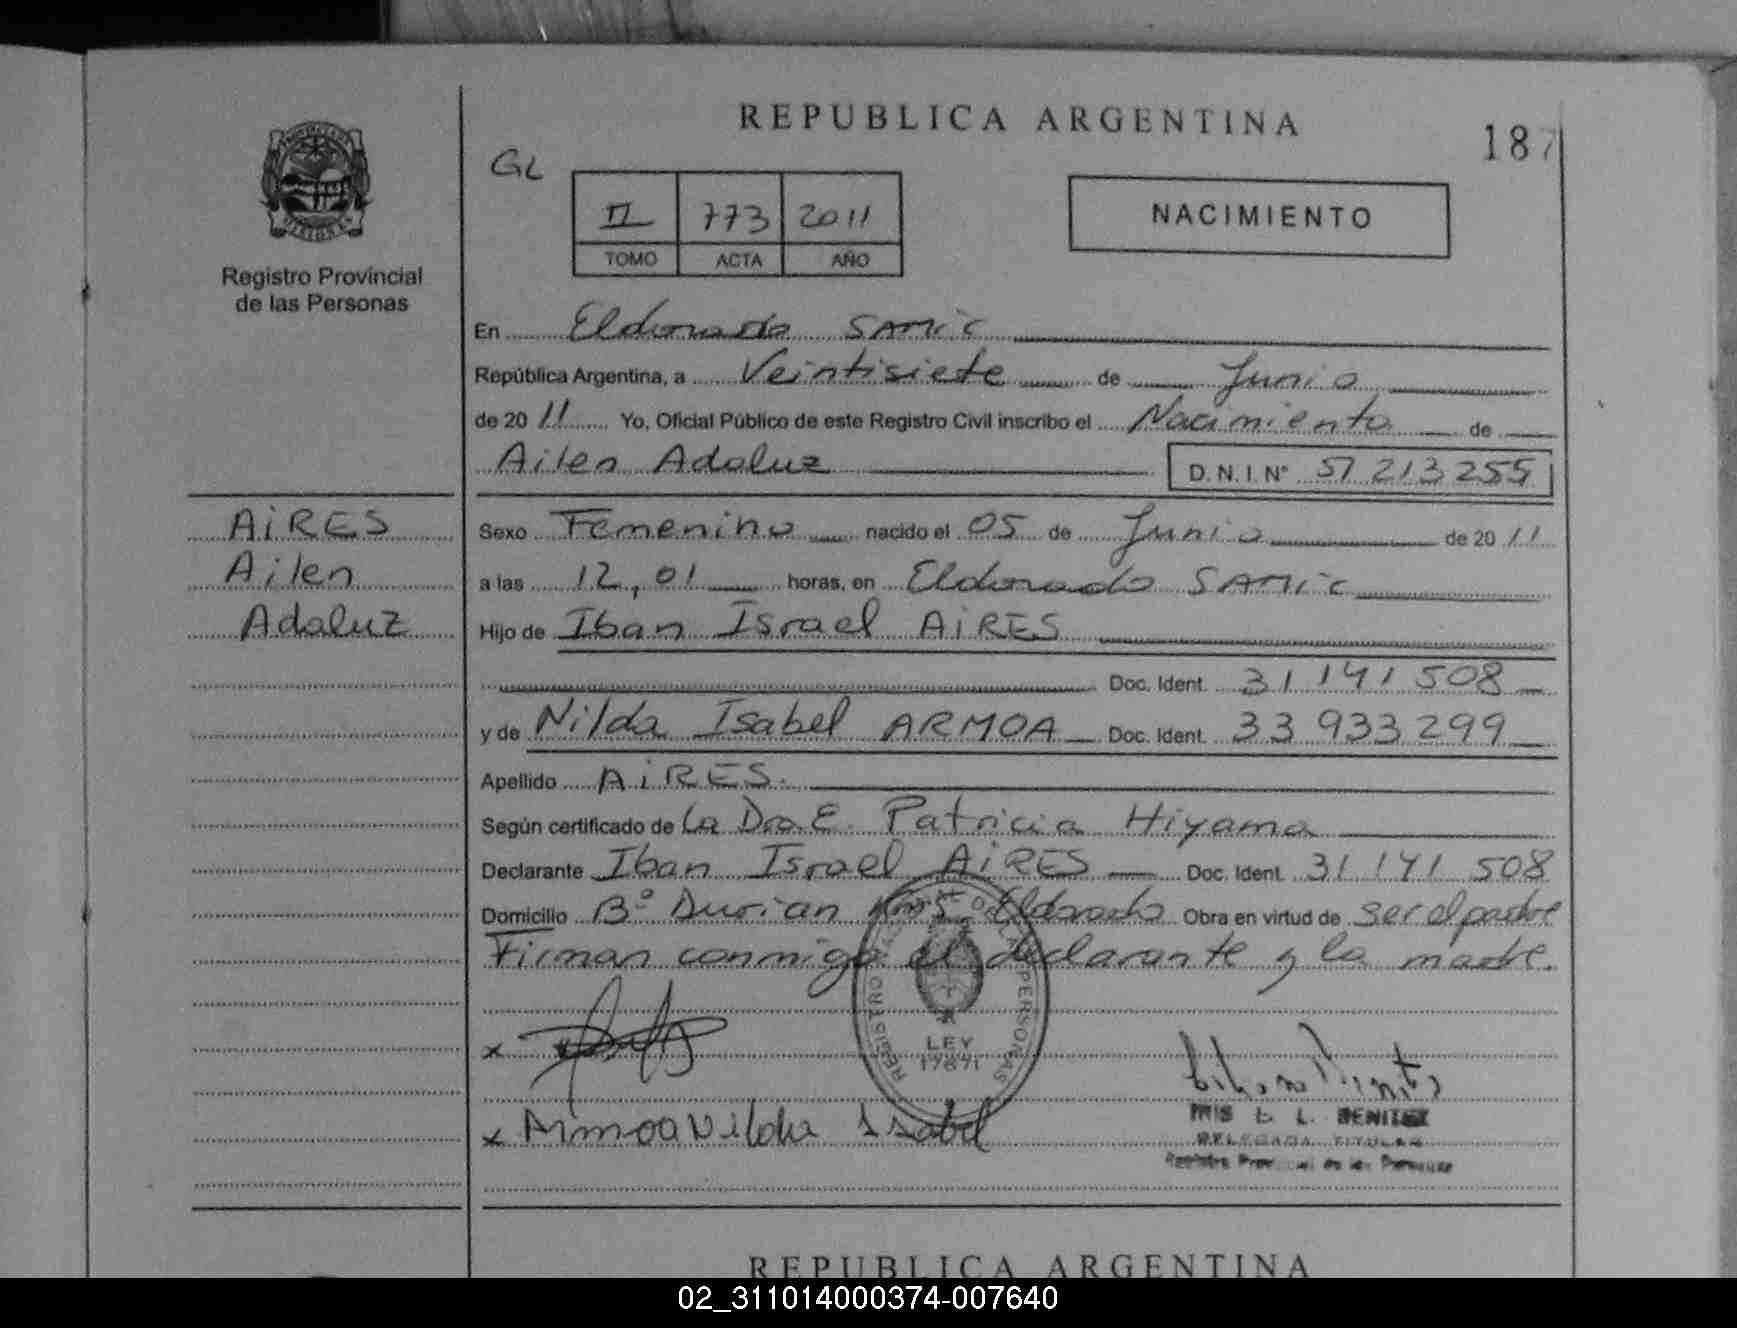 REPUBLICA ARGENTINA
187
GL
II 773 2011
TOMO ACTA AÑO
NACIMIENTO
PROVINCIA DE MISIONES
Registro Provincial
de las Personas
En Eldorado SAMIC
República Argentina, a Veintisiete de Junio
de 20 11 Yo, Oficial Público de este Registro Civil inscribo el Nacimiento de
Ailen Adaluz D.N.I. Nº 51 213 255
AiRES
Ailen
Adaluz
Sexo Femenino nacido el 05 de Junio de 20 11
a las 12,01 horas, en Eldorado SAMIC
Hijo de Iban Israel AiRES
Doc. Ident. 31 141 508
y de Nilda Isabel ARMOA Doc. Ident. 33 933 299
Apellido AiRES.
Según certificado de La Dra E. Patricia Hiyama
Declarante Iban Israel AiRES Doc. Ident. 31 141 508
Domicilio Bº Durian Km 5 Eldorado Obra en virtud de ser el padre
Firman conmigo el declarante y la madre.
REGISTRO NAL. DE LAS PERSONAS
LEY
17671
x
x Armoa Nilda Isabel
IRIS E. L. BENITEZ
DELEGADA TITULAR
Registro Provincial de las Personas
REPUBLICA ARGENTINA
02_311014000374-007640